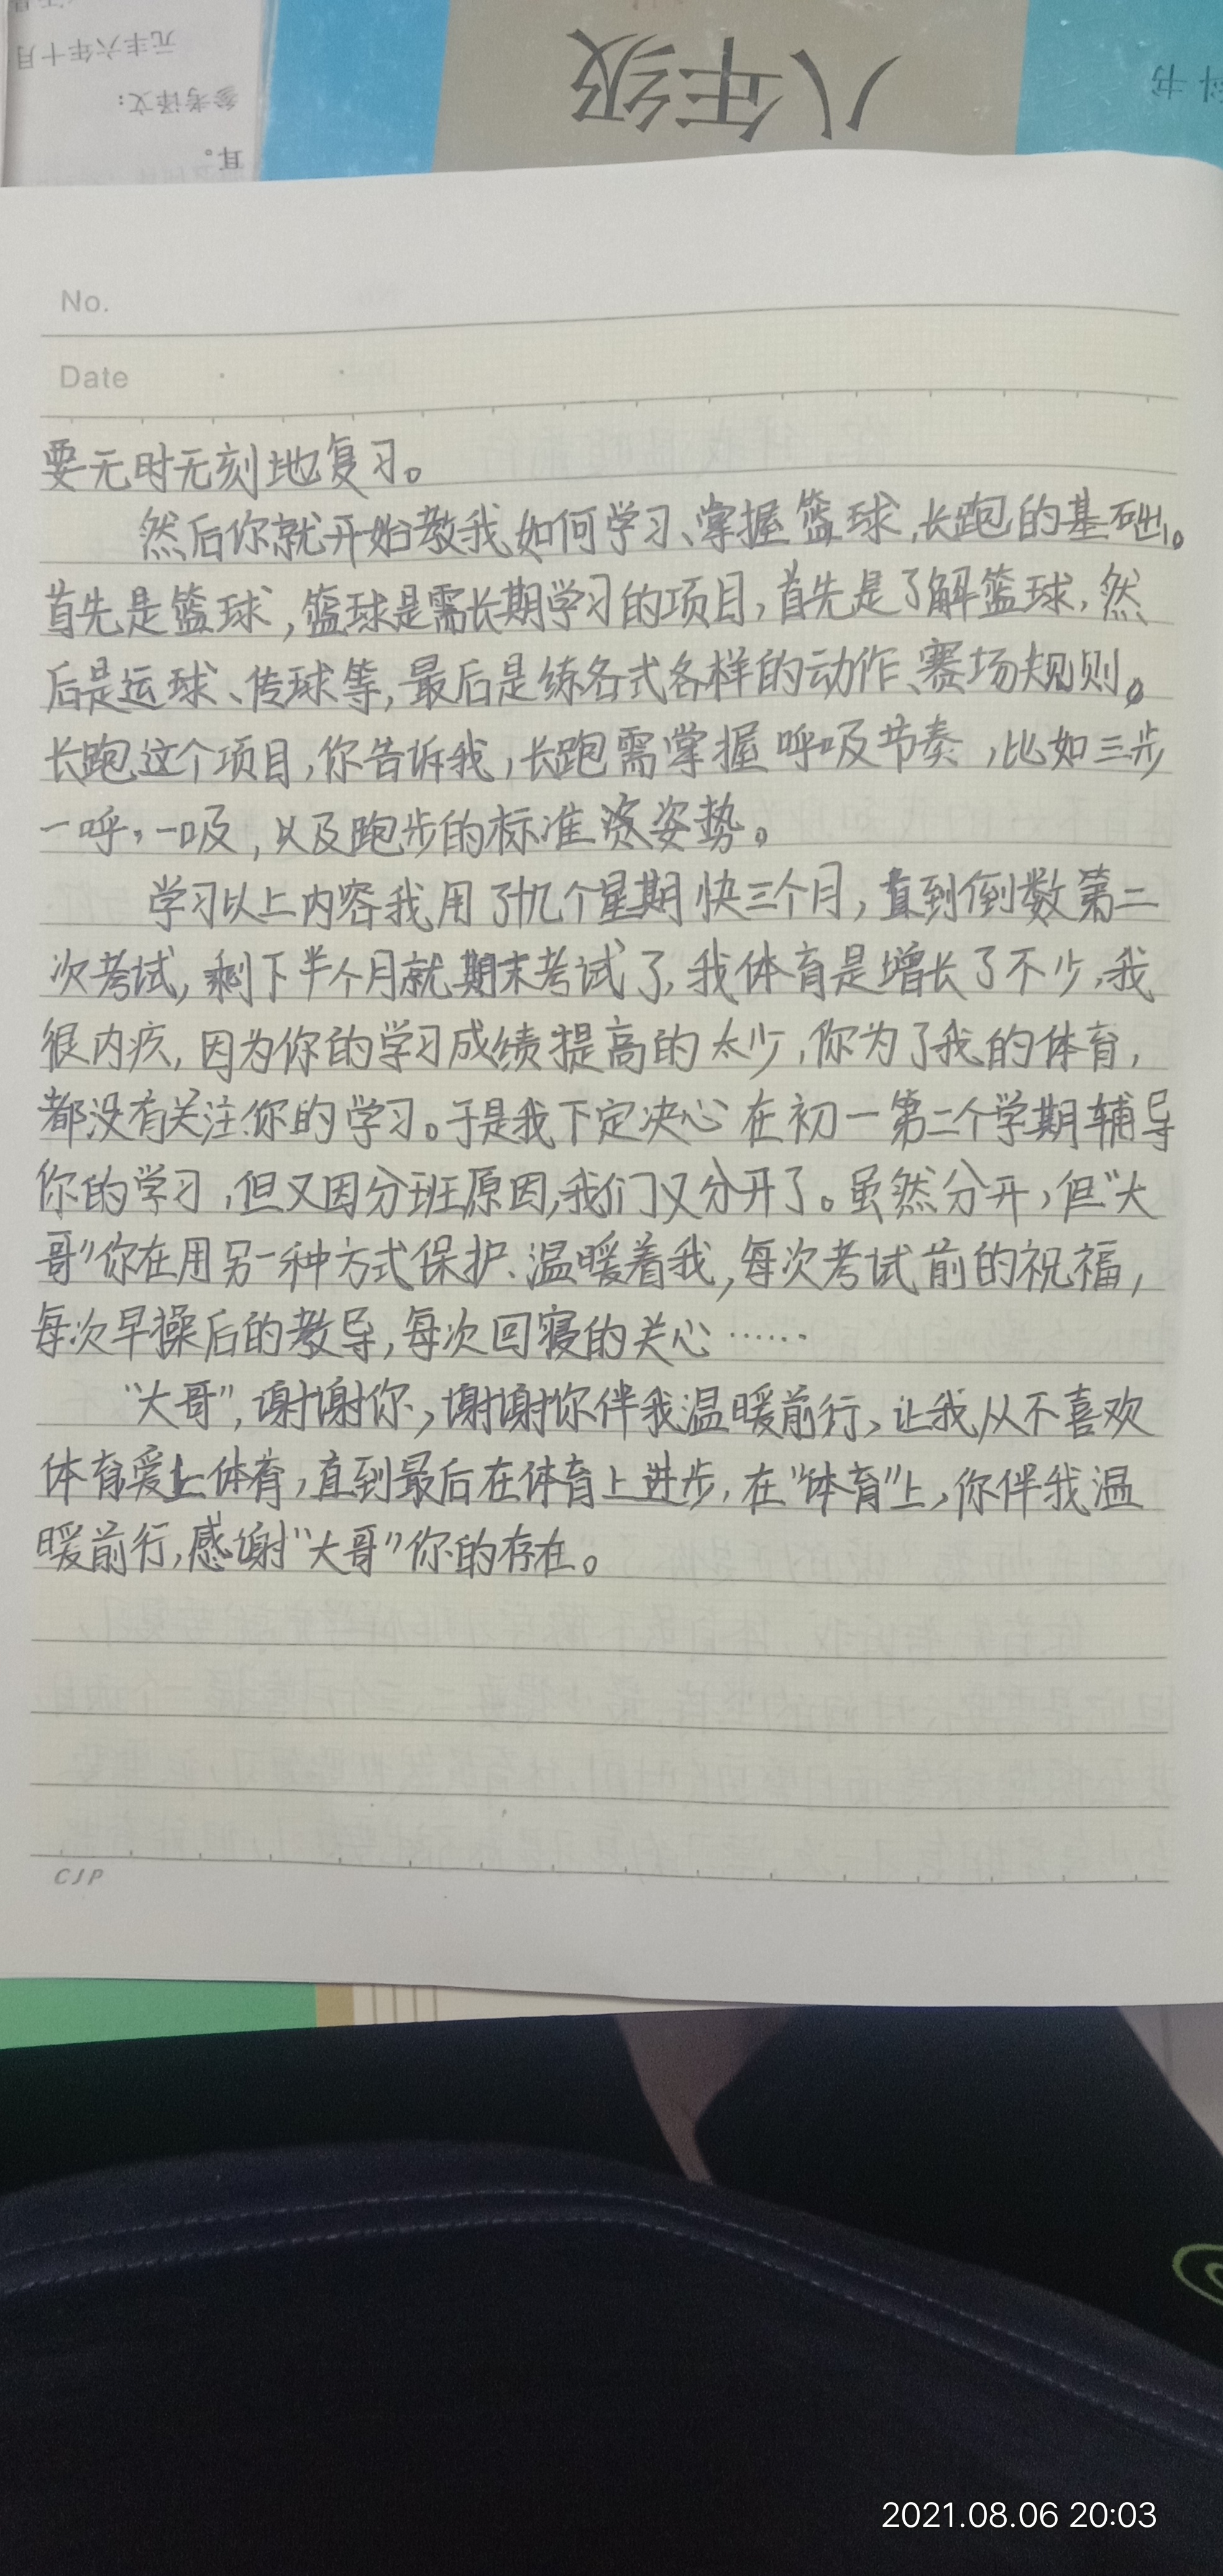 元丰六年十月
参考译文：
耳。
八年级
科书
No.
Date
要无时无刻地复习。
然后你就开始教我如何学习、掌握篮球,长跑的基础。
首先是篮球,篮球是需长期学习的项目,首先是了解篮球,然
后是运球、传球等,最后是练各式各样的动作、赛场规则。
长跑这个项目,你告诉我,长跑需掌握呼吸节奏,比如三步
一呼,一吸,以及跑步的标准姿势。
学习以上内容我用了十几个星期快三个月,直到倒数第二
次考试,剩下半个月就期末考试了,我体育是增长了不少,我
很内疚,因为你的学习成绩提高的太少,你为了我的体育,
都没有关注你的学习。于是我下定决心在初一第二个学期辅导
你的学习,但又因分班原因,我们又分开了。虽然分开,但“大
哥”你在用另一种方式保护、温暖着我,每次考试前的祝福,
每次早操后的教导,每次回寝的关心……
“大哥”,谢谢你,谢谢你伴我温暖前行,让我从不喜欢
体育爱上体育,直到最后在体育上进步,在“体育”上,你伴我温
暖前行,感谢“大哥”你的存在。
CJP
2021.08.06 20:03